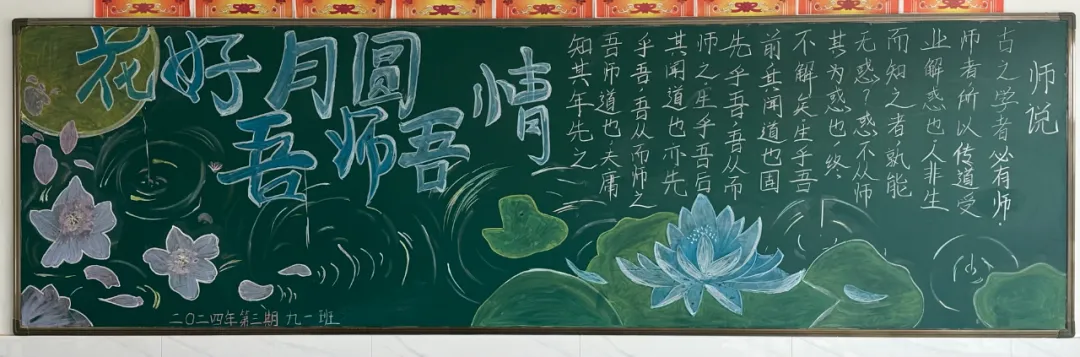 花好月圆
吾师吾情
师说
古之学者必有师.
师者所以传道受
业解惑也,人非生
而知之者,孰能
无惑?惑不从师
其为惑也,终
不解矣生乎吾
前其闻道也固
先乎吾,吾从而
师之,生乎吾后
其闻道也亦先
乎吾,吾从而师之
吾师道也,夫庸
知其年先之
二〇二四年第三期 九一班